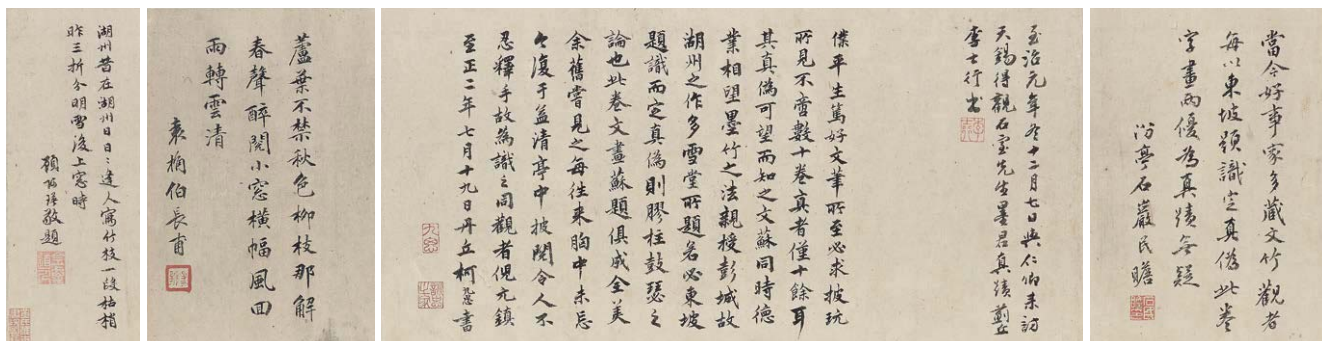 當今好事家多藏文竹觀者
每以東坡題識定真僞此卷
字畫兩優為真蹟無疑
汾亭石巖民瞻
至治元年冬十二月七日與仁卿来訪
天錫得觀石室先生墨君真蹟薊丘
李士行書
僕平生篤好文筆所至必求披玩
所見不啻數十卷真者僅十餘耳
其真僞可望而知之文蘇同時德
業相望墨竹之法親授彭城故
湖州之作多雪堂所題名必東坡
題識而定真僞則膠柱鼓瑟之
論也此卷文畫蘇題俱成全美
余舊嘗見之每往来胸中未忘
今復于益清亭中披閱令人不
忍釋手故為識之同觀者倪元鎮
至正二年七月十九日丹丘柯九思書
蘆葉不禁秋色柳枝那解
春聲醉閱小窓橫幅風回
雨轉雲清
袁桷伯長甫
湖州昔在湖州日日逢人寫竹枝一段枯梢
作三折分明雪後上窓時
顧阿瑛敬題